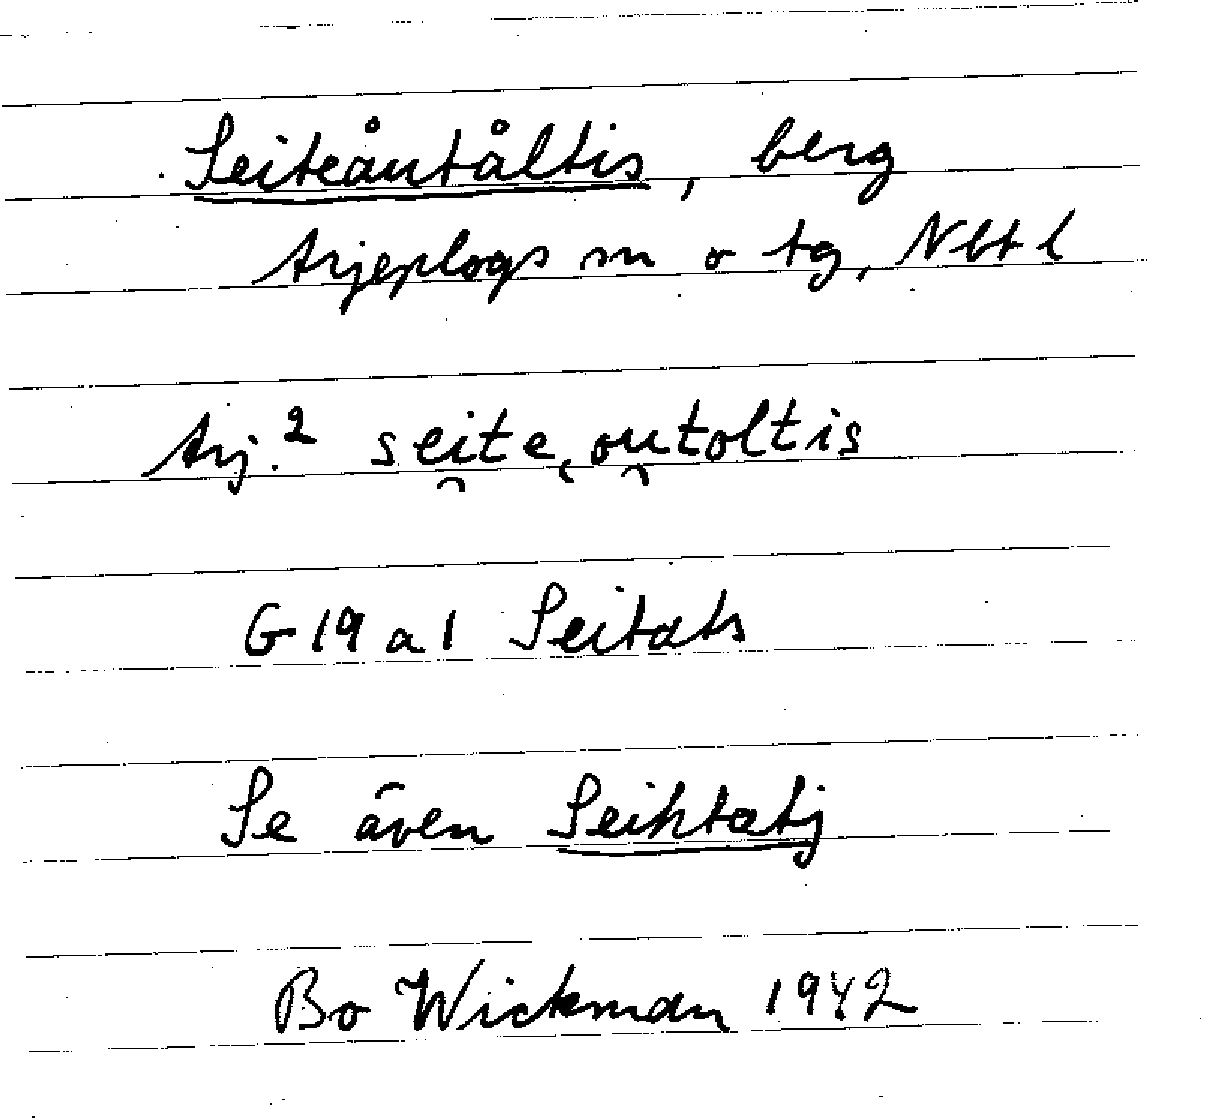 Seiteåutåltis, berg
Arjeplogs sn o tg, Nbt l
Arj.² sei̯te͔ou̯toltis
G 19 a 1 Seitats
Se även Seihtatj
Bo Wickman 1942